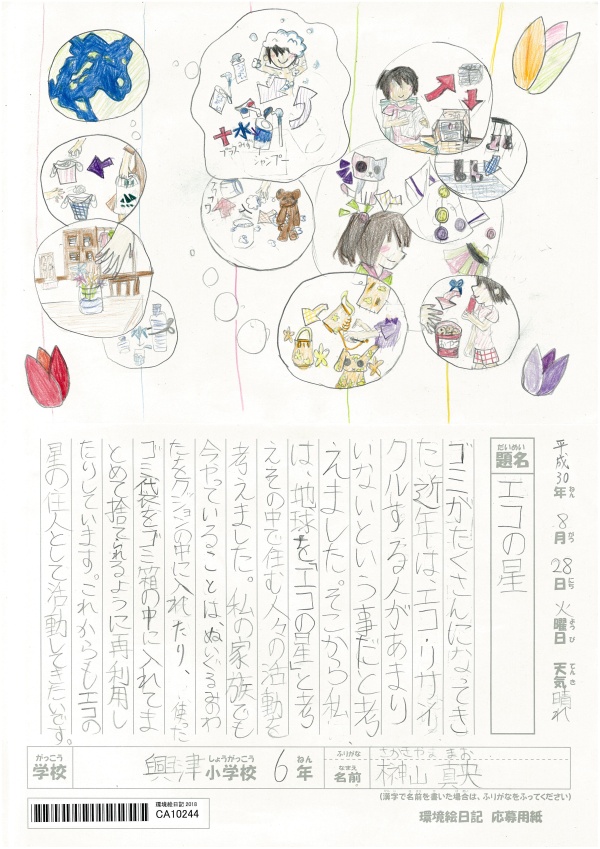 プラス
水
シャンプー
平成30年 8月 28日 火曜日 天気 晴れ
ねん がつ にち ようび てんき
だいめい
題名
エコの星
ゴミがたくさんになってき
た近年は、エコ・リサイ
クルする人があまり
いないという事だと考
えました。そこから私
は、地球を「エコの星」と考
えその中で住む人々の活動を
考えました。私の家族でも
今やっていることは、ぬいぐるみのわ
たをクッションの中に入れたり、使った
ゴミ袋をゴミ箱の中に入れてま
とめて捨てれるように再利用し
たりしています。これからもエコの
星の住人として活動してきたいです。
がっこう
学校
興津
しょうがっこう
小学校
6
ねん
年
ふりがな
さかきやま まお
なまえ
名前
榊山 真央
(漢字で名前を書いた場合は、ふりがなをふってください)
環境絵日記 2018
CA10244
環境絵日記 応募用紙